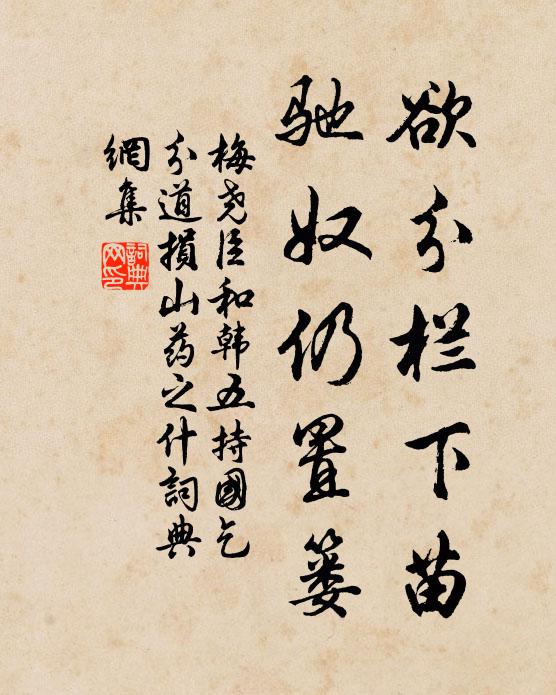 欲分栏下苗
驰奴仍置篓
梅尧臣和韩五持國乞
分道損山药之什詞典
網集
詞典
网印